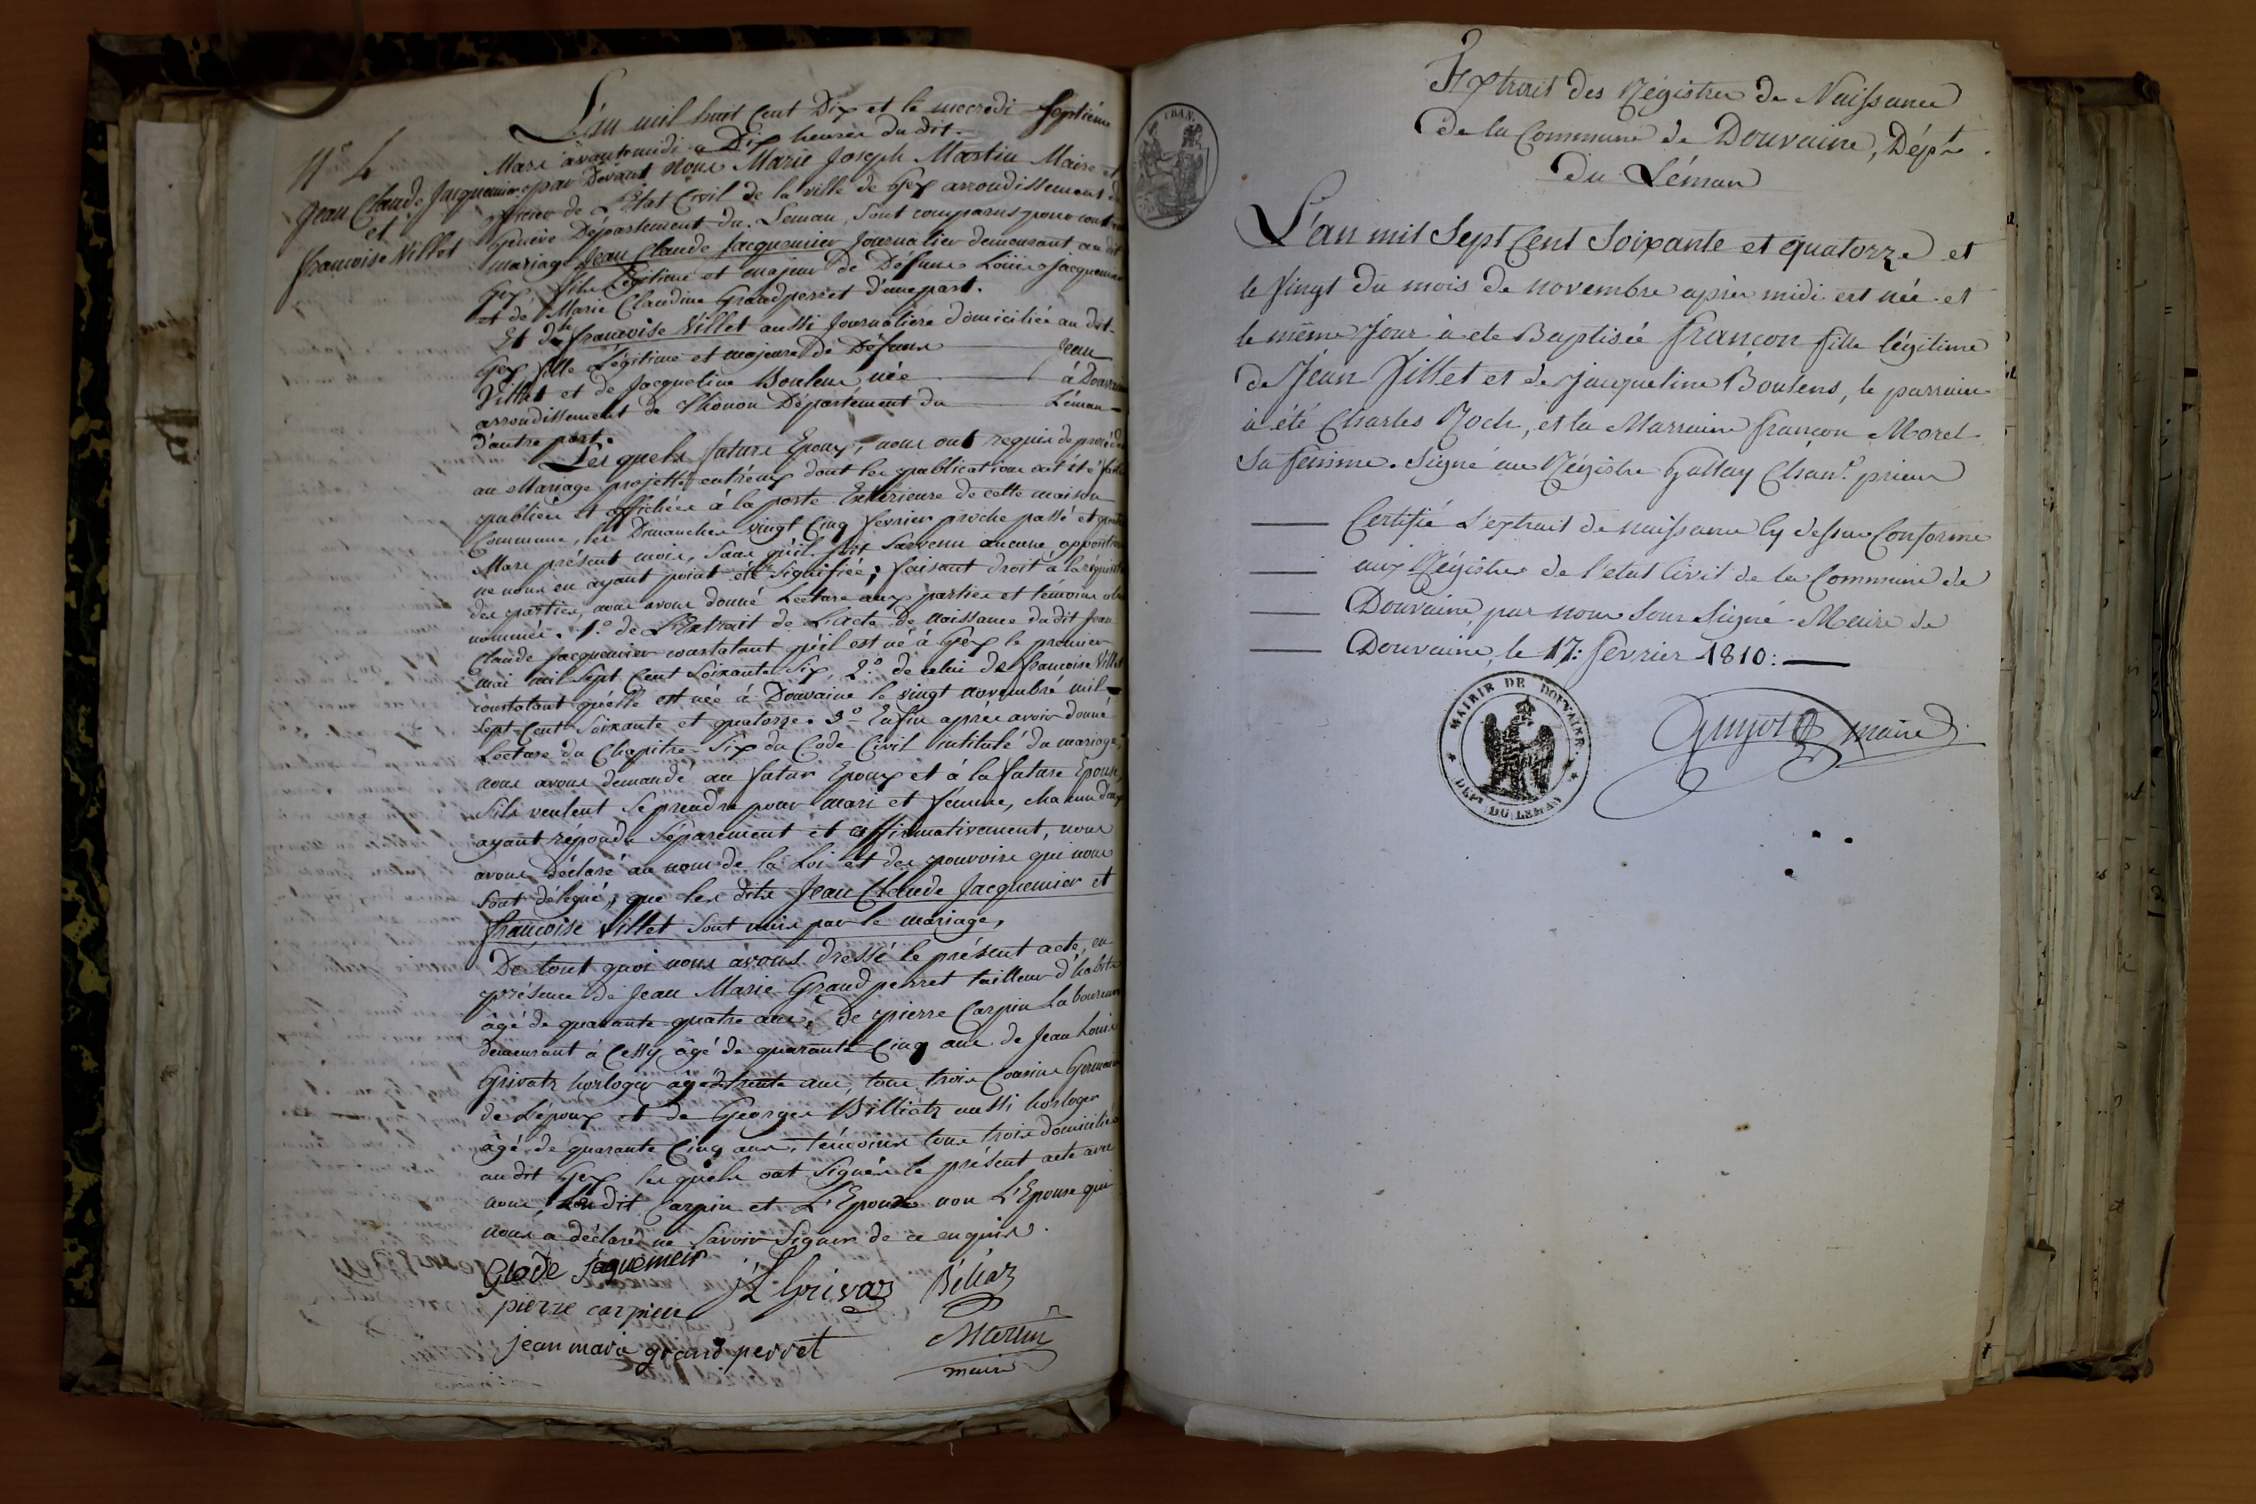 L'an mil huit Cent Dix et le mecredi Septième
Mars avant midi a Dix heures du dit.
N.º 4
Jean Claude Jacquemier
et
françoise Villet
par Devant Nous Marie Joseph Martin Maire et
officier de L'Etat Civil de la ville de Gex arrondissement de
Genève Département du Leman, Sont comparus pour contracter
mariage Jean Claude Jacquemier Journalier demeurant au dit
Gex, fils Légitime et majeur de Défunt Loüis Jacquemier
et de Marie Claudine Grandperret d'une part.
Et de françoise Villet aussi Journalière domiciliée au dit
Gex fille Légitime et majeure de Défunt Jean
Villet et de Jacqueline Boulens née à Douvaine
arrondissement de Thonon Département du Léman
d'autre part.
Les quels futurs Epoux, nous ont requis de procéder
au Mariage projetté entr'eux dont les publications ont été faites
publiées et affichées à la porte Extérieure de cette maison
Commune, les Dimanches vingt Cinq fevrier proche passé et quatre
Mars présent mois, Sans qu'il soit Survenu aucune opposition
ne nous en ayant point été Signifiée; faisant droit à la réquisition
des parties, nous avons donné Lecture aux parties et témoins
nommés. 1.º de L'Extrait de L'acte de naissance du dit Jean
Claude Jacquemier constatant qu'il est né à Gex le premier
mai mil Sept Cent Soixante Six, 2.º de celui de françoise Villet
constatant qu'elle est née à Douvaine le vingt novembre mil
Sept Cent Soixante et quatorze. 3.º Enfin après avoir donné
Lecture du Chapitre Six du Code Civil intitulé du mariage,
nous avons demandé au futur Epoux et à la future Epouse,
S'ils veulent Se prendre pour mari et femme, chacun d'eux
ayant répondu Séparément et affirmativement, nous
avons déclaré au nom de la Loi et des pouvoirs qui nous
Sont délégué, que les dits Jean Claude Jacquemier et
françoise Villet Sont unis par le mariage,
De tout quoi nous avons dressé le présent acte, en
présence de Jean Marie Grandperret tailleur d'habits
âgé de quarante quatre ans, De pierre Carpin Laboureur
demeurant à Cessy âgé de quarante Cinq ans de Jean Louis
Grivatz horloger âgé de trente ans, tous trois Cousins Germains
de L'époux et de Georges Billiatz aussi horloger
âgé de quarante Cinq ans, témoins tous trois domiciliés
au dit Gex les quels ont Signés le présent acte avec
nous, Le dit Carpin et L'Epoux non L'Epouse qui
nous a déclaré ne Savoir Signer de ce enquis.
Glode Jaquemeir
JL Grivaz
Béliaz
pierre carpien
Martin
maire
jean marie grand perret
Extrait des Régistres de Naissance
de la Commune de Douvaine, Dép.t
du Léman
L'an mil Sept Cent Soixante et quatorze et
le Vingt du mois de novembre après midi est née et
le même Jour à eté Baptisée françon fille légitime
de Jean Villet et de Jacqueline Boulens, le parrain
à été Charles Roch, et la Marraine françon Morel
Sa femme. Signé au Régistre Gallay Chan.e prieur
Certifié L'extrait de naissance Cy dessus Conforme
aux Régistres de l'état Civil de la Commune de
Douvaine par nous Sous Signé Maire de
Douvaine, le 17: fevrier 1810:
MAIRIE DE DOUVAINE.
DEPT. DU LEMAN
Guyot maire